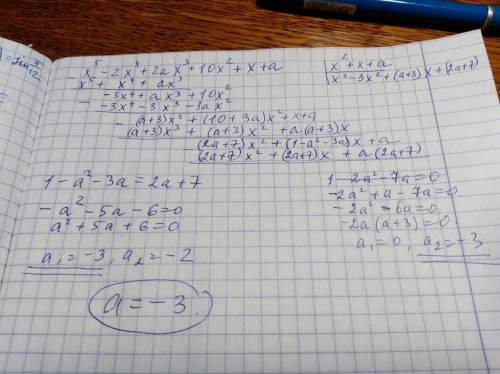 x⁵ - 2x⁴ + 2ax³ + 10x² + x + a | x² + x + a
x⁵ + x⁴ + ax³ | x³ - 3x² + (a+3)x + (2a+7)
- -3x⁴ + ax³ + 10x²
-3x⁴ - 3x³ - 3ax²
- (a+3)x³ + (10+3a)x² + x + a
(a+3)x³ + (a+3)x² + a(a+3)x
- (2a+7)x² + (1-a²-3a)x + a
(2a+7)x² + (2a+7)x + a(2a+7)
1 - a² - 3a = 2a + 7
- a² - 5a - 6 = 0
a² + 5a + 6 = 0
a₁ = -3, a₂ = -2
1 - 2a² - 7a = 0
-2a² + a - 7a = 0
-2a² - 6a = 0
-2a(a+3) = 0
a₁ = 0, a₂ = -3
a = -3